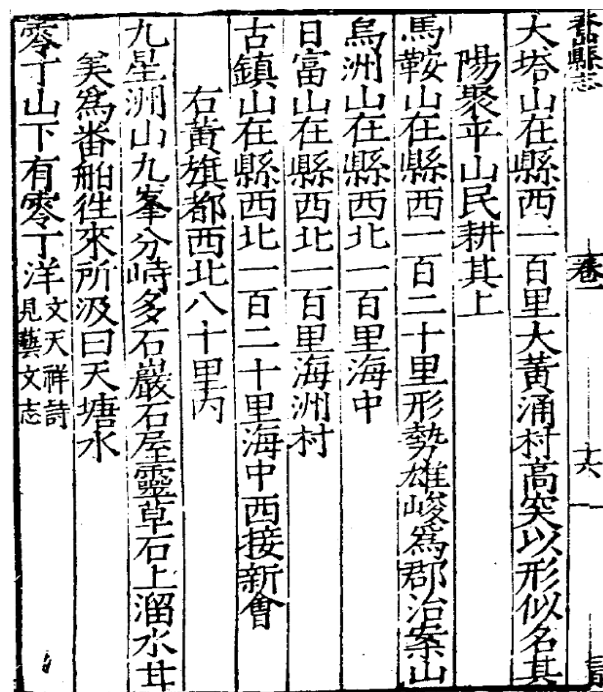 香山縣志
卷一
十六
大塔山在縣西一百里大黃涌村高突以形似名其
陽聚平山民耕其上
馬鞍山在縣西一百二十里形勢雄峻為郡治案山
烏洲山在縣西北一百里海中
日富山在縣西北一百里海洲村
古鎮山在縣西北一百二十里海中西接新會
右黃旗都西北八十里内
九星洲山九峯分峙多石巖石屋靈草石上溜水甘
美為番舶徃來所汲曰天塘水
零丁山下有零丁洋文天祥詩見藝文志